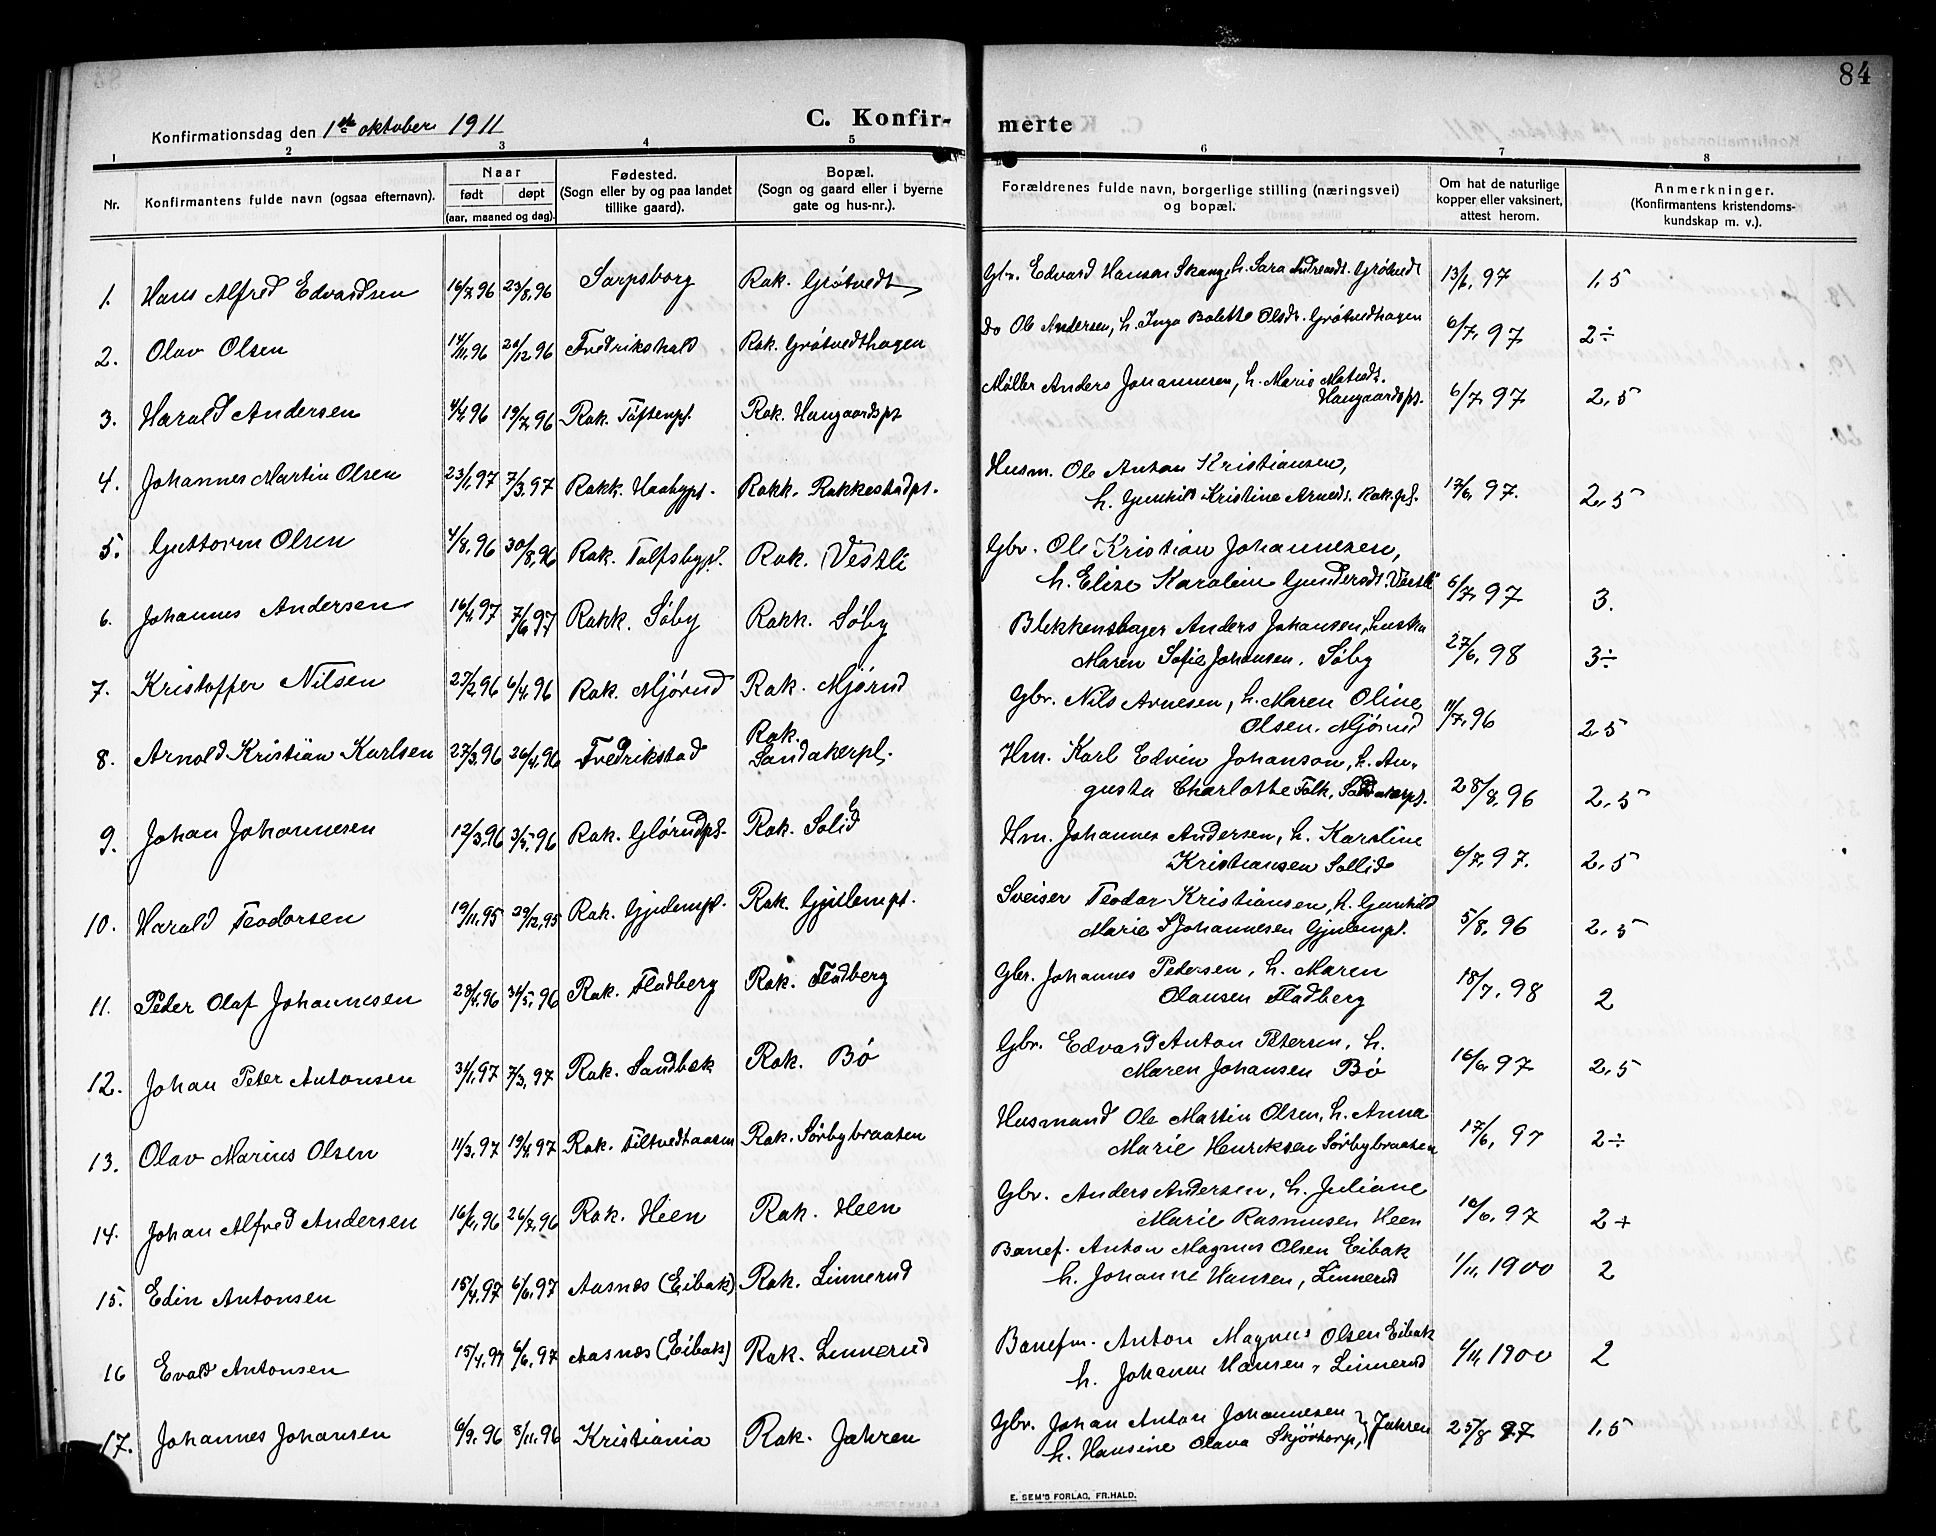 84
Konfirmationsdag den 1ste oktober 1911
C. Konfir- merte
1 2 3 4 5 6 7 8
Nr.
Konfirmantens fulde navn (ogsaa efternavn).
Naar
født døpt
(aar, maaned og dag).
Fødested.
(Sogn eller by og paa landet
tillike gaard).
Bopæl.
(Sogn og gaard eller i byerne
gate og hus-nr.).
Forældrenes fulde navn, borgerlige stilling (næringsvei)
og bopæl.
Om hat de naturlige
kopper eller vaksinert,
attest herom.
Anmerkninger.
(Konfirmantens kristendoms-
kundskap m. v.).
1. Hans Alfred Edvardsen 16/7.96 23/8.96 Sarpsborg Rak. Grøtvedt Gbr. Edvard Hansen Skaug, h. Sara Andreasdt. Grøtvedt 13/6.97 1,5
2. Olav Olsen 14/11.96 20/12 96 Fredrikshald Rak. Grøtvedthagen Do Ole Andersen, h. Inga Bolette Olsdt. Grøtvedhagen 6/7.97 2÷
3. Harald Andersen 4/4.96 19/7.96 Rak. Toftenpl. Rak. Haugaardspl Møller Anders Johannesen, h. Marie Matsdt.
Haugaardspl. 6/7.97 2,5
4. Johannes Martin Olsen 23/1.97 7/3.97 Rakk. Haabypl. Rakk. Rakkestadpl. Husm. Ole Anton Kristiansen,
h. Gunhild Kristine Arnesdt. Rak.pl. 17/6.97. 2,5
5. Guttorm Olsen 4/8.96 30/8.96 Rak. Tolfsbypl. Rak. Vestli Gbr. Ole Kristian Johannesen,
h. Elise Karoline Gundersdt. Væstli 6/7.97 3.
6. Johannes Andersen 16/4.97 7/6 97 Rakk. Søby Rakk. Søby Blikkenslager Anders Johansen, hustru
Maren Sofie Johansen, Søby 27/6.98 3÷
7. Kristoffer Nilsen 27/2.96 6/4.96 Rak. Mjørud Rak. Mjørud Gbr. Nils Arnesen, h. Maren Oline
Olsen. Mjørud 11/7.96 2,5
8. Arnold Kristian Karlsen 27/3.96 26/4.96 Fredrikstad Rak.
Sandakerpl. Hm. Karl Edvin Johanson, h. Au-
gusta Charlotte Falk, Sandakerpl. 28/8.96 2,5
9. Johan Johannesen 12/3.96 3/5.96 Rak. Glørudpl. Rak. Solid Hm. Johannes Andersen, h. Karoline
Kristiansen Sollid 6/7.97. 2,5
10. Harald Teodorsen 19/11.95 29/12.95 Rak. Gjulempl. Rak. Gjulempl. Sveiser Teodor Kristiansen, h. Gunhild
Marie Johannesen Gjulempl. 5/8.96 2,5
11. Peder Olaf Johannesen 28/4.96 31/5.96 Rak. Fladberg Rak. Fladberg Gbr. Johannes Pedersen, h. Maren
Olausen Fladberg 18/7.98 2
12. Johan Peter Antonsen 31/1.97 7/3.97 Rak. Sandbæk Rak. Bø Gbr. Edvard Anton Petersen, h.
Maren Johansen Bø 16/6.97 2,5
13. Olav Marius Olsen 11/3.97 19/4.97 Rak. Tiltvedhaasen Rak. Sørbybraaten Husmand Ole Martin Olsen, h. Anna
Marie Henriksen Sørbybraaten 17/6.97 2÷
14. Johan Alfred Andersen 16/6.96 26/7.96 Rak. Heen Rak. Heen Gbr. Anders Andersen, h. Juliane
Marie Rasmusen Heen 16/6.97 2+
15. Edin Antonsen 15/4.97 6/6.97 Aasnes (Eibak) Rak. Linnerud Banef. Anton Magnus Olsen Eibak
h. Johanne Hansen, Linnerud 1/11.1900 2
16 Evald Antonsen 15/4.97 6/6.97 Aasnes (Eibak) Rak. Linnerud Banefm. Anton Magnus Olsen Eibak
h. Johanne Hansen, Linnerud 1/11.1900 2
17. Johannes Johansen 6/9.96 8/11.96 Kristiania Rak. Jahren Gbr. Johan Anton Johannesen
h. Hansine Olava Skjørtorp, } Jahren 25/8 97 1,5
E. SEM'S FORLAG, FR.HALD.